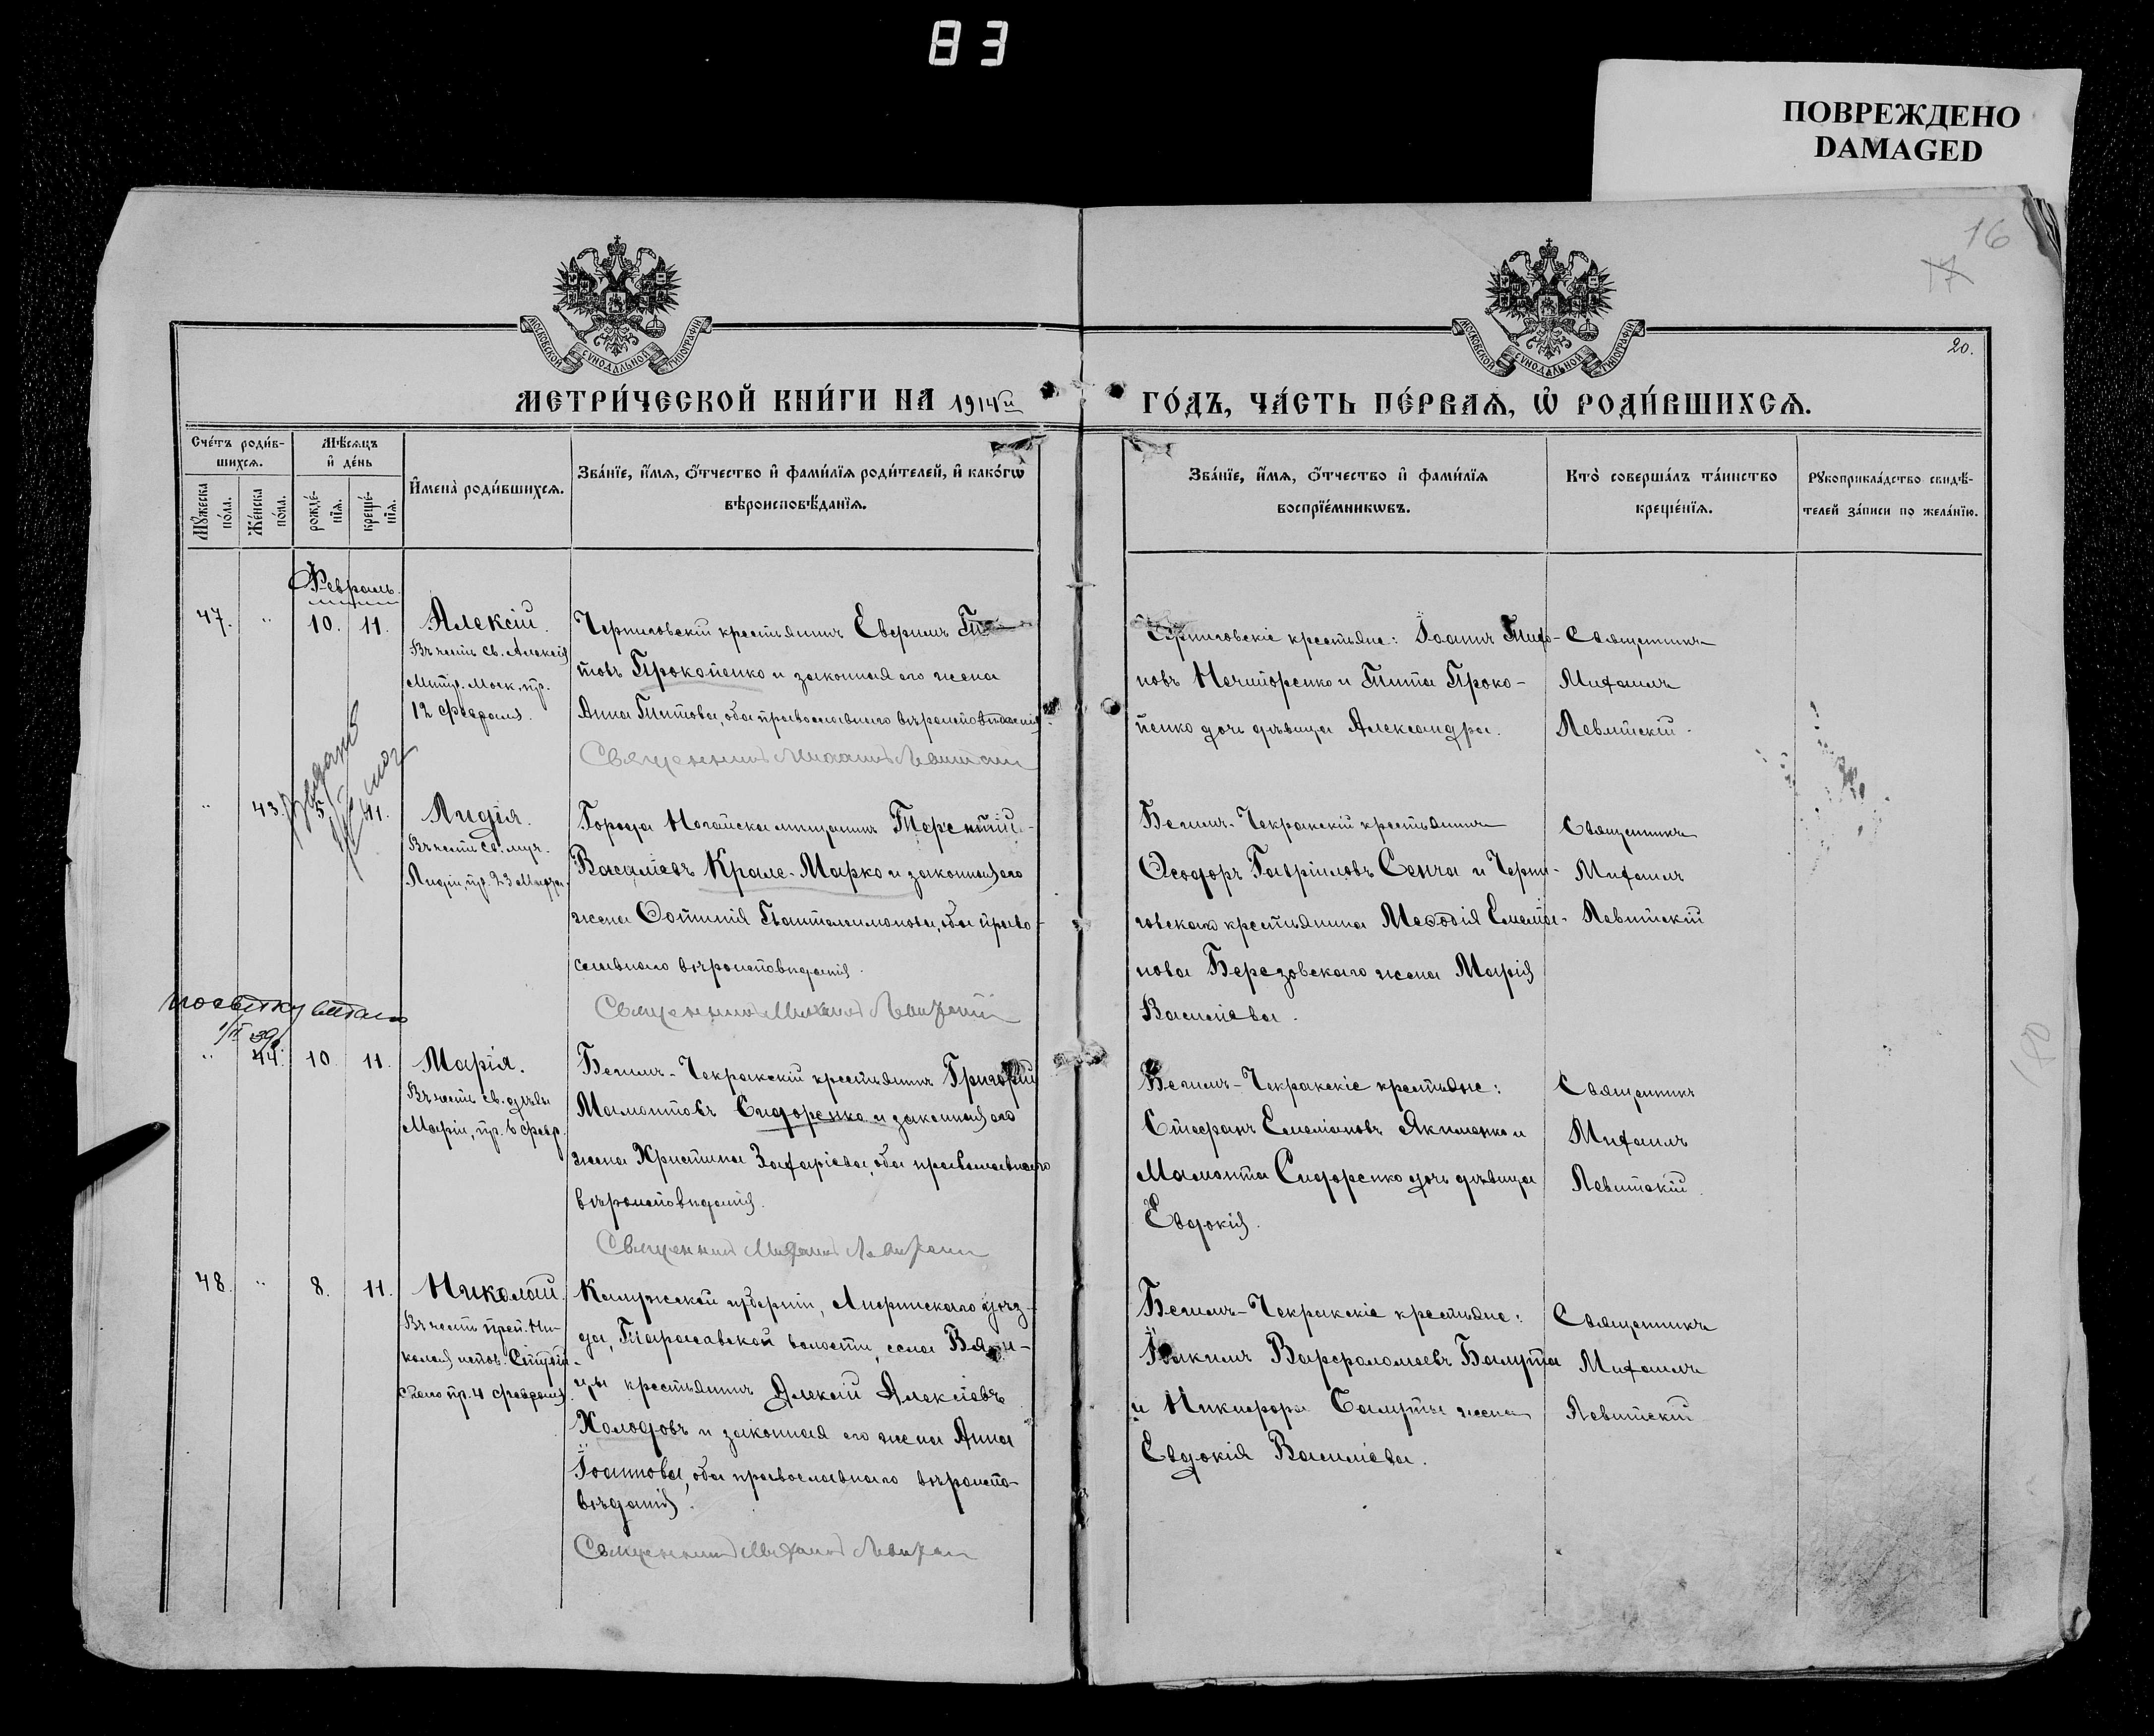 83
ПОВРЕЖДЕНО
DAMAGED
16
17
20.
МОСКОВСКОЙ СѴНОДАЛЬНОЙ ТИПОГРАФІИ
МОСКОВСКОЙ СѴНОДАЛЬНОЙ ТИПОГРАФІИ
МЕТРИ́ЧЕСКОЙ КНИ́ГИ НА 1914й ГО́ДЪ, ЧА́СТЬ ПЕ́РВАѦ, Ѡ҆ РОДИ́ВШИХСѦ.
Сче́тъ роди́в-
шихсѧ.
Мꙋ́жеска
по́ла.
Же́нска
по́ла.
Мѣ́сѧцъ
и҆ де́нь
рожде́-
нїѧ.
креще́-
нїѧ.
И҆мена̀ роди́вшихсѧ.
Зва́нїе, и҆́мѧ, ѻ҆́тчество и҆ фами́лїѧ роди́телей, и҆ како́гѡ
вѣроисповѣ́данїѧ.
Зва́нїе, и҆́мѧ, ѻ҆́тчество и҆ фами́лїѧ
воспрїе́мникѡвъ.
Кто̀ соверша́лъ та́инство
креще́нїѧ.
Рꙋкоприкла́дство свидѣ́-
телей за́писи по жела́нїю.
Февраль.
47. " 10. 11.
Алексій.
Въ честь св. Алексія
Митр. Моск., пр.
12 февраля.
Черниговскій крестьянинъ Евфимъ Ти-
товъ Прокопенко и законная его жена
Анна Титова, оба православнаго вѣроисповѣданія.
Священникъ Михаилъ Левитскій
Черниговскіе крестьяне: Іоаннъ
новъ Нечипоренко и Тита Проко-
пенко дочь дѣвица Александра.
Священникъ
Михаилъ
Левитскій.
" 43. 5. 11.
Лидія.
Въ честь св. муч.
Лидіи, пр. 23 Марта.
Города Ногайска мещанинъ Терентій
Василіевъ Крале-Марко и законная его
жена Фотинія Пантелеимонова, оба право-
славнаго вѣроисповѣданія.
Священникъ Михаилъ Левитскій
Бегимъ-Чекракскій крестьянинъ
Ѳеодоръ Гавріиловъ Сенча и Черни-
говскаго крестьянина Меѳодія Емеліа-
нова Березовскаго жена Марія
Василіева.
Священникъ
Михаилъ
Левитскій
" 44. 10. 11.
Марія.
Въ честь св. дѣвы
Маріи, пр. 6 февр.
Бегимъ-Чекракскій крестьянинъ Григорій
Мамонтовъ Сидоренко и законная его
жена Христина Захаріева, оба православнаго
вѣроисповѣданія.
Священникъ Михаилъ Левитскій
Бегимъ-Чекракскіе крестьяне:
Стефанъ Емеліановъ Якименко и
Мамонта Сидоренко дочь дѣвица
Евдокія.
Священникъ
Михаилъ
Левитскій.
48. " 8. 11.
Николай.
Въ честь преп. Ни-
колая испов. Студій-
скаго пр. 4 февраля.
Калужской губерніи, Лихвинскаго уѣз-
да, волости, села
крестьянинъ Алексій Алексіевъ
Холодовъ и законная его жена Анна
Іоаннова, оба православнаго вѣроиспо-
вѣданія.
Священникъ Михаилъ Левитскій
Бегимъ-Чекракскіе крестьяне:
Іоакимъ Варфоломеевъ Балута
и Никифора Балуты жена
Евдокія Василіева.
Священникъ
Михаилъ
Левитскій